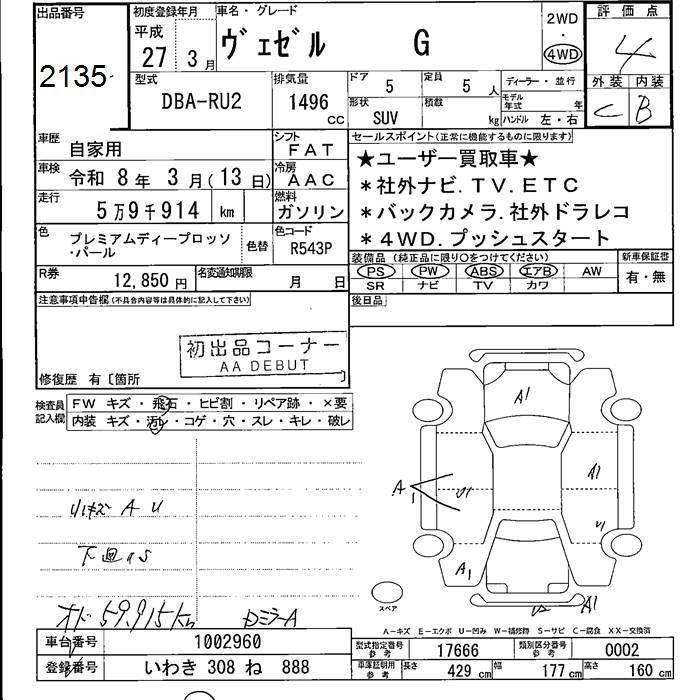 出品番号
2135
初度登録年月
平成
27 3月
車名・グレード
ヴェゼル G
2WD
・
4WD
評価点
4
外装 内装
C B
型式
DBA-RU2
排気量
1496 cc
ドア 5
定員 5人
形状 SUV
積載 kg
ディーラー・並行
モデル年式 年
ハンドル 左・右
車歴 自家用
シフト FAT
車検 令和 8年 3月(13日)
冷房 AAC
走行 5万9千914 km
燃料 ガソリン
色 プレミアムディープロッソ
・パール
色替
色コード R543P
R券 12,850円
名変通知期限 月 日
セールスポイント(正常に機能するものに限ります)
★ユーザー買取車★
*社外ナビ.TV.ETC
*バックカメラ.社外ドラレコ
*4WD.プッシュスタート
装備品 (純正品に限り○をつけてください)
PS PW ABS エアB AW
SR ナビ TV カワ
新車保証書
有・無
後日品
注意事項申告欄(不具合内容等は具体的に記入して下さい)
初出品コーナー
AA DEBUT
修復歴 有〔箇所 〕
検査員
記入欄
FW キズ・飛石・ヒビ割・リペア跡・×要
内装 キズ・汚レ・コゲ・穴・スレ・キレ・破レ
小キズ A U
下回りS
オド 59,915km
DミラーA
A1
A1
A1
U1
A1
U1
A1
スペア
A1
A-キズ E-エクボ U-凹み W-補修跡 S-サビ C-腐食 XX-交換済
車台番号 1002960
登録番号 いわき 308 ね 888
型式指定番号
参考
17666
類別区分番号
参考
0002
車庫証明用
参考
長さ 429 cm 幅 177 cm 高さ 160 cm